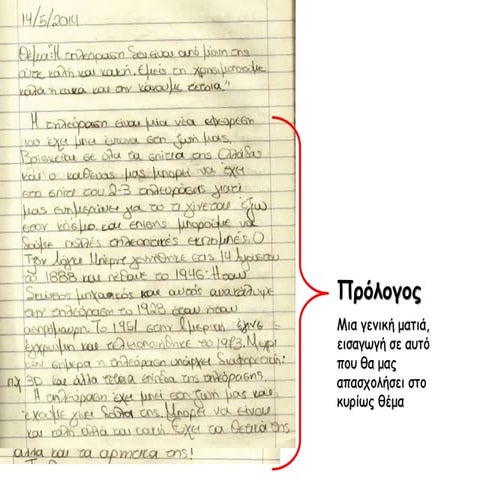 14/5/2014
Θέμα: "Η τηλεόραση δεν είναι από μόνη της
ούτε καλή και κακή. Εμείς τη χρησιμοποιούμε
καλά ή κακά και την κάνουμε τέτοια"
Η τηλεόραση είναι μία νέα εφεύρεση
που έχει μπει στη ζωή μας.
Βρίσκεται σε όλα τα σπίτια της Ελλάδας
και ο καθένας μας μπορεί να έχει
στο σπίτι του 2-3 τηλεοράσεις γιατί
μας ενημερώνει για το τι γίνεται έξω
στον κόσμο και επίσης μπορούμε να
δούμε πολλές τηλεοπτικές εκπομπές. Ο
Τζον Λόγκι Μπερντ γεννήθηκε στις 14 Αυγούστου
το 1888 και πέθανε το 1946. Ήταν
μηχανικός και αυτός ανακάλυψε
την τηλεόραση το 1928 όταν ήταν
ασπρόμαυρη. Το 1951 στην Αμερική έγινε
έγχρωμη και τελειοποιήθηκε το 1973. Μέχρι
και σήμερα η τηλεόραση υπάρχει διαφορετική:
π.χ 3D και άλλα τέτοια επίπεδα της τηλεόρασης.
Η τηλεόραση έχει μπει στη ζωή μας και
έχουμε γίνει δούλοι της. Μπορεί να είναι
και καλή αλλά και κακή. Έχει τα θετικά της
αλλά και τα αρνητικά της!
Πρόλογος
Μια γενική ματιά,
εισαγωγή σε αυτό
που θα μας
απασχολήσει στο
κυρίως θέμα